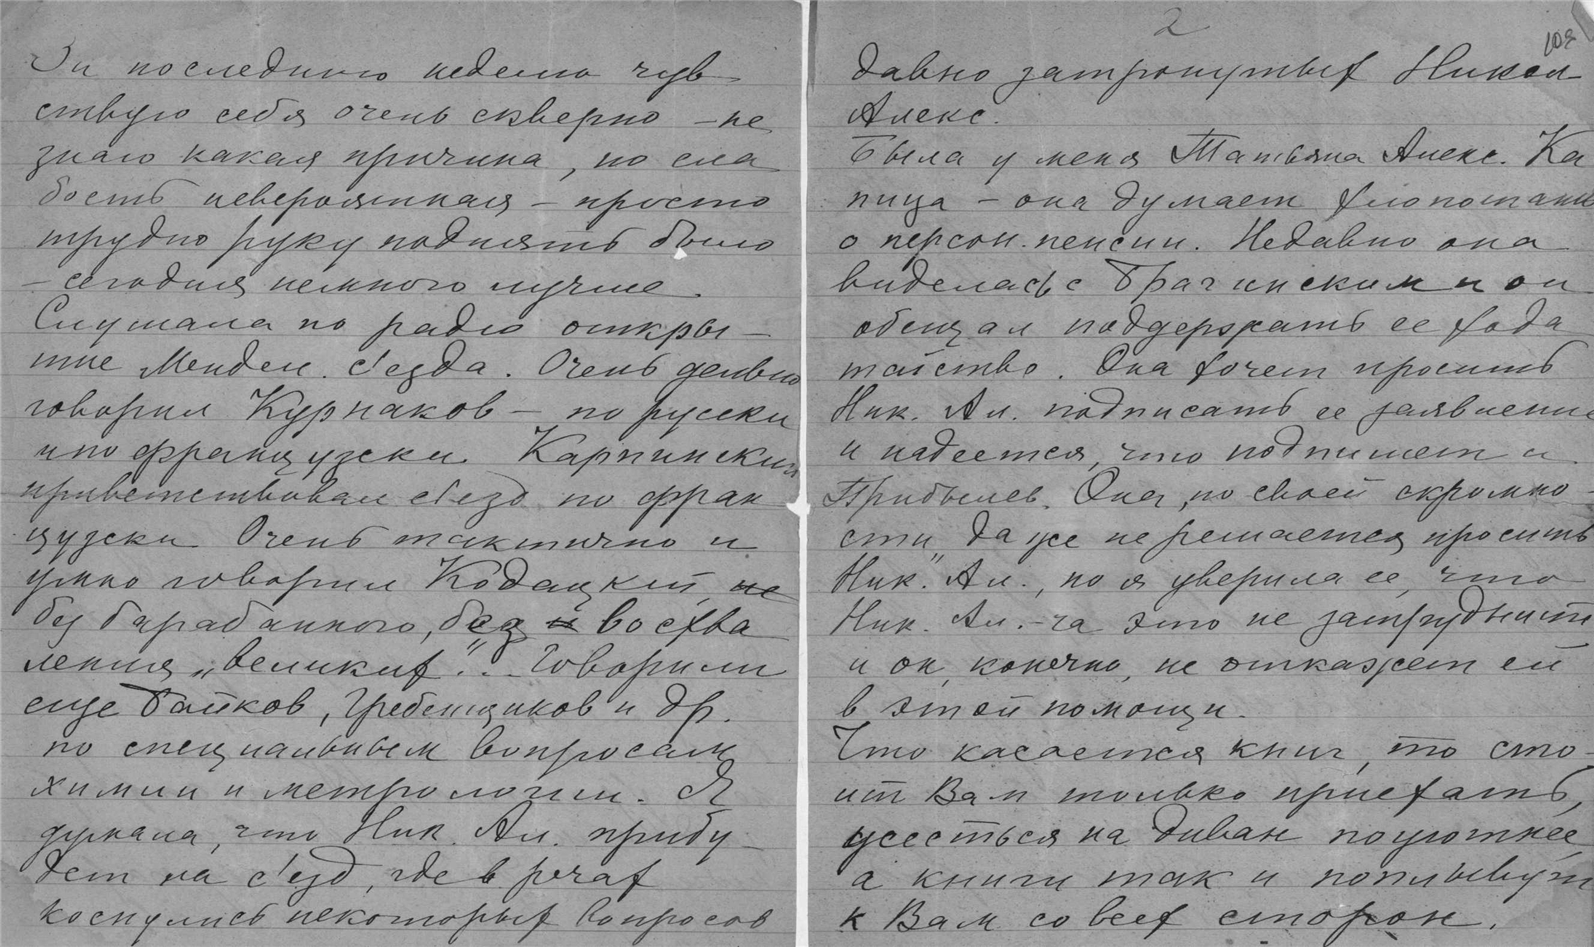 Эти последнюю неделю чув-
ствую себя очень скверно – не
знаю какая причина, но сла
бость невероятная – просто
трудно руку поднять было
– сегодня немного лучше.
Слушала по радио откры-
тие Мендел. с'езда. Очень дельно
говорил Курнаков – по русски
и по французски Карпинский
приветствовал с'езд по фран
цузски Очень тактично и
умно говорил Кодацкий,
без барабанного, без восхва
ления „великих"... Говорили
еще Байков, Гребенщиков и др.
по специальным вопросам
химии и метрологии. Я
думала, что Ник. Ал. прибу-
дет на с'езд, где в речах
коснулись некоторых вопросов
2
108
давно затронутых Никол
Алекс.
Была у меня Татьяна Алекс. Ка
пица – она думает хлопотание
о персон. пенсии. Недавно она
виделась с Брагинским и он
обещал поддержать ее хода
тайство. Она хочет просить
Ник. Ал. подписать ее заявление
и надеется, что подпишет и
Прибылев. Она, по своей скромно
сти, даже не решается просить
Ник. Ал., но я уверила ее, что
Ник. Ал.-ча это не затруднит
и он, конечно, не откажет ей
в этой помощи.
Что касается книг, то сто-
ит Вам только приехать,
усесться на диван поуютнее,
а книги так и поплывут
к Вам со всех сторон.